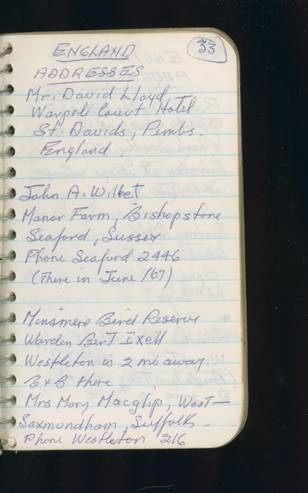 33
ENGLAND
ADDRESSES
Mr. David Lloyd
Warpole Court Hotel
St. Davids, Pembs.
England.
John A. Wilbet
Manor Farm, Bishopstone
Seaford, Sussex
Phone Seaford 2446
(There in June 167)
Minsmere Bird Reserve
Warden Bert Ixell
Westleton is 2 mi away
B+B there
Mrs Mary Macglip, West—
Saxmundham, Suffolk.
Phone Westleton 216